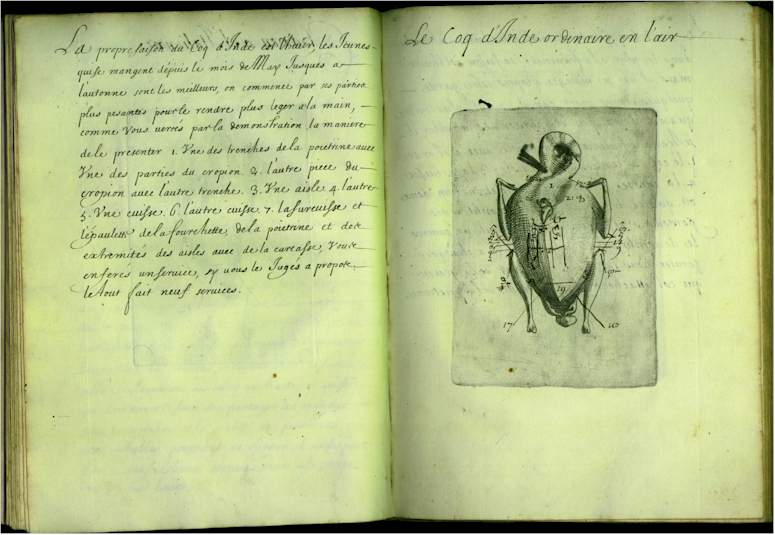 La propre saison du Coq d'Inde est l'hiuer, les Jeunes
qui se mangent depuis le mois de May Jusques a
l'autonne sont les meilleurs, on commence par ses parties
plus pesantes pour le rendre plus leger a la main,
comme Vous verrés par la demonstration, la maniere
de le presenter 1. Vne des trenches de la poictrine auec
Vne des parties du cropion 2. l'autre piece du
cropion auec l'autre trenche. 3. Vne aisle 4. l'autre
5. Vne cuisse. 6. l'autre cuisse. 7. la surcuisse et
l'épaulette de la fourchette, de la poictrine et des
extremités des aisles auec de la carcasse, Vous
en ferés un seruice, sy vous le Jugés a propos,
le tout fait neuf seruices.
Le Coq d'Inde ordinaire en l'air
1
2
19
17